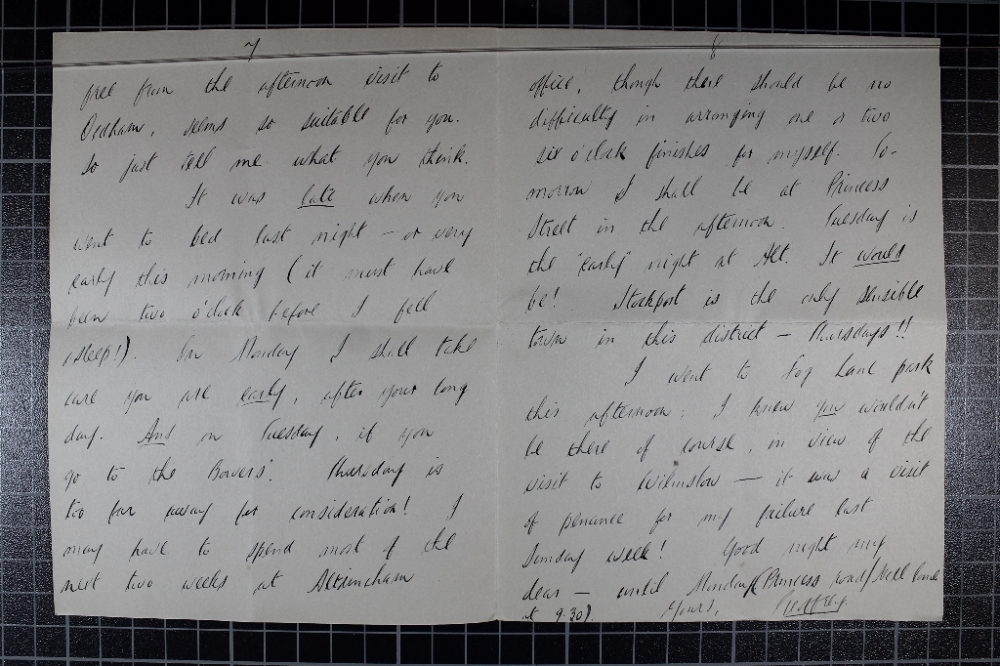 7
free from the afternoon visit to
Oldham, seems so suitable for you.
So just tell me what you think.
It was late when you
went to bed last night – or very
early this morning (it must have
been two o'clock before I fell
asleep!). On Monday I shall take
care you are early, after your long
day. And on Tuesday, if you
go to the Bowers'. Thursday is
too far away for consideration! I
may have to spend most of the
next two weeks at Altrincham
8
office, though there should be no
difficulty in arranging one or two
six o'clock finishes for myself. To-
morrow I shall be at Princess
Street in the afternoon. Tuesday is
the "early" night at Alt. It would
be! Stockport is the only sensible
town in this district – Thursdays!!
I went to Fog Lane park
this afternoon; I knew you wouldn't
be there of course, in view of the
visit to Wilmslow – it was a visit
of penance for my failure last
Sunday week! Good night my
dear – until Monday (Princess road/Nell lane
at 9.30).
Yours, Geoffrey.